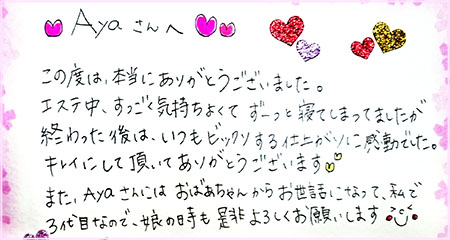 Ayaさんへ
この度は、本当にありがとうございました。
エステ中、すっごく気持ちよくて ずーっと寝てしまってましたが
終わった後は、いつもビックリする仕上がりに感動でした。
キレイにして頂いてありがとうございます
また、Ayaさんには おばあちゃんからお世話になって、私で
3代目なので、娘の時も是非よろしくお願いします